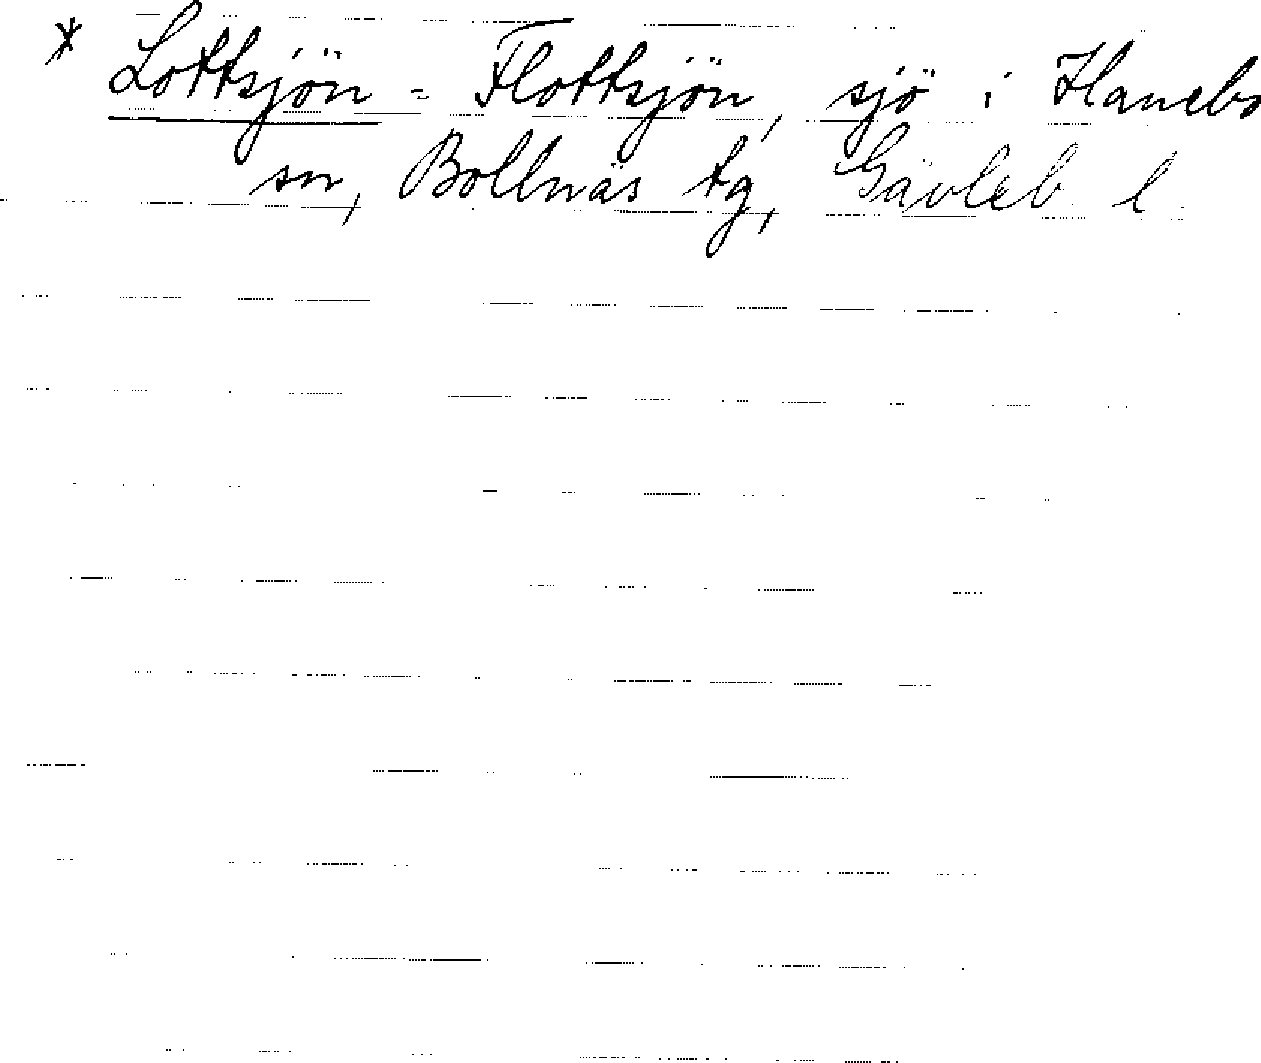 * Lottsjön = Flottsjön, sjö i Hanebo
sn, Bollnäs tg, Gävleb l.